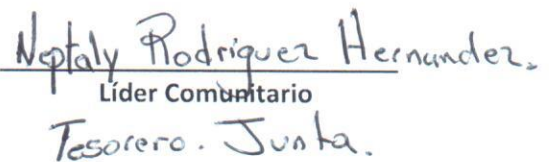 Neptaly Rodriguez Hernandez.
Líder Comunitario
Tesorero. Junta.